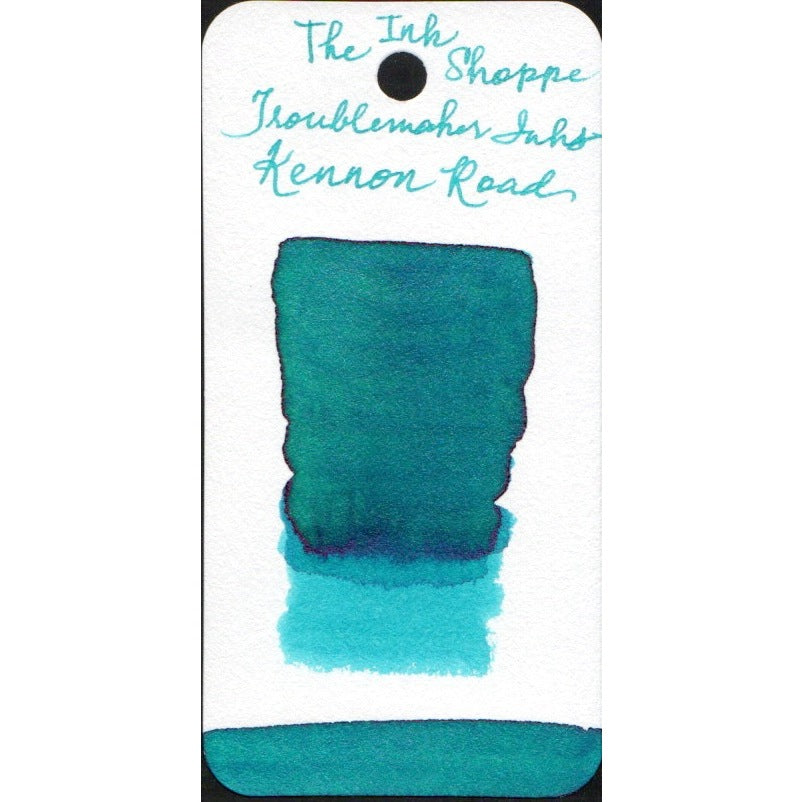 The Ink Shoppe
Troublemaker Inks
Kennon Road